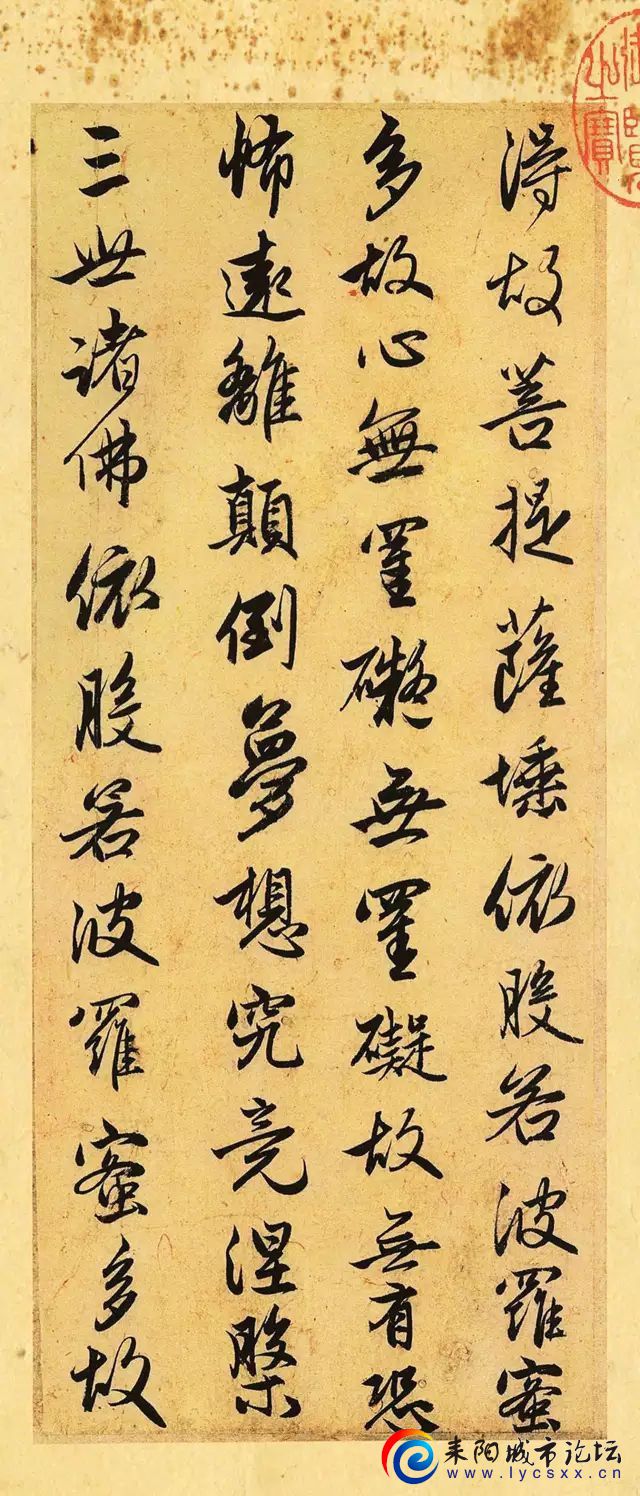 得故菩提薩埵依般若波羅蜜
多故心無罣礙無罣礙故無有恐
怖遠離顛倒夢想究竟涅槃
三世諸佛依般若波羅蜜多故
之寶
耒阳城市论坛
www.lycsxx.cn